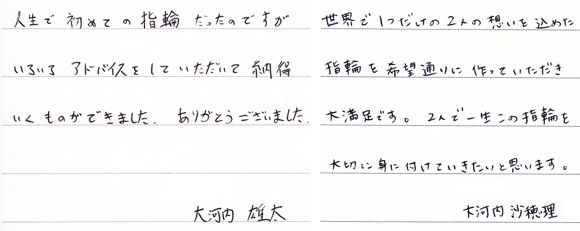 人生で初めての指輪だったのですが
いろいろアドバイスをしていただいて納得
いくものができました。ありがとうございました。
大河内 雄太
世界で1つだけの2人の想いを込めた
指輪を希望通りに作っていただき
大満足です。2人で一生この指輪を
大切に身に付けていきたいと思います。
大河内沙穂理